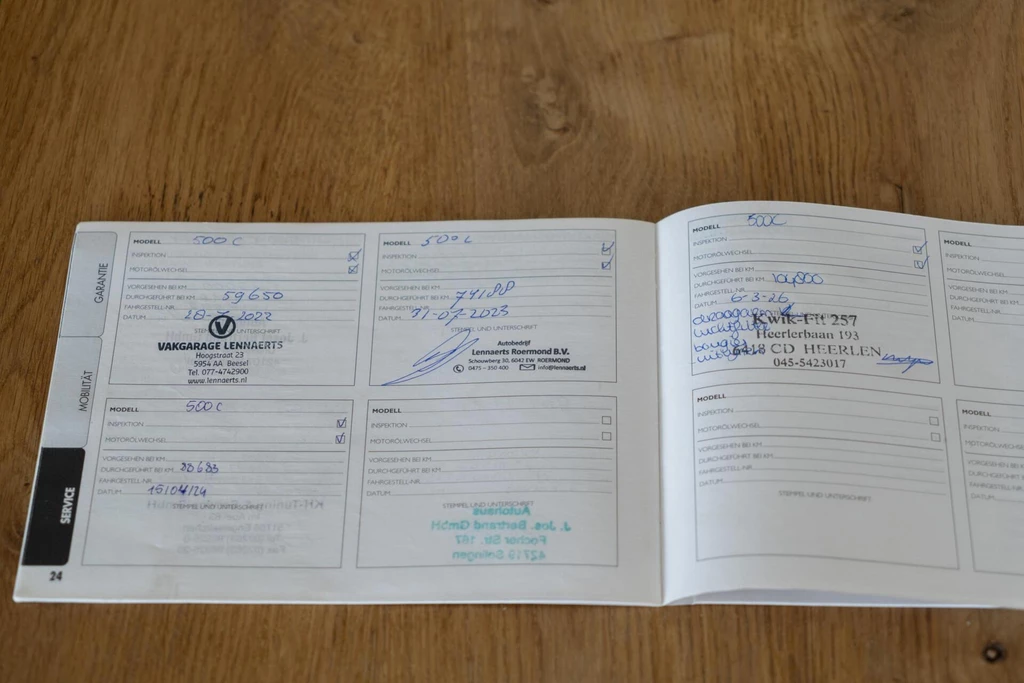 GARANTIE
MOBILITÄT
SERVICE
24
MODELL 500 C
INSPEKTION
MOTORÖLWECHSEL
VORGESEHEN BEI KM
DURCHGEFÜHRT BEI KM 59650
FAHRGESTELL-NR.
DATUM 28-7-2022
STEMPEL UND UNTERSCHRIFT
VAKGARAGE LENNAERTS
Hoogstraat 23
5954 AA Beesel
Tel. 077-4742900
www.lennaerts.nl
MODELL 500 C
INSPEKTION
MOTORÖLWECHSEL
VORGESEHEN BEI KM
DURCHGEFÜHRT BEI KM 74188
FAHRGESTELL-NR.
DATUM 31-07-2023
STEMPEL UND UNTERSCHRIFT
Autobedrijf
Lennaerts Roermond B.V.
Schouwberg 30, 6042 EW ROERMOND
0475 - 350 400 info@lennaerts.nl
MODELL 500 C
INSPEKTION
MOTORÖLWECHSEL
VORGESEHEN BEI KM
DURCHGEFÜHRT BEI KM
FAHRGESTELL-NR.
DATUM 15/04/24
STEMPEL UND UNTERSCHRIFT
MODELL
INSPEKTION
MOTORÖLWECHSEL
VORGESEHEN BEI KM
DURCHGEFÜHRT BEI KM
FAHRGESTELL-NR.
DATUM
STEMPEL UND UNTERSCHRIFT
Autohaus
J. Jos. Bertrand GmbH
Focher Str. 187
42719 Solingen
MODELL 500C
INSPEKTION
MOTORÖLWECHSEL
VORGESEHEN BEI KM
DURCHGEFÜHRT BEI KM
FAHRGESTELL-NR.
DATUM 6-3-26
luchtfilter
bougies
Kwik-Fit 257
Heerlerbaan 193
6418 CD HEERLEN
045-5423017
MODELL
INSPEKTION
MOTORÖLWECHSEL
VORGESEHEN BEI KM
DURCHGEFÜHRT BEI KM
FAHRGESTELL-NR.
DATUM
STEMPEL UND UNTERSCHRIFT
MODELL
INSPEKTION
MOTORÖLWECHSEL
VORGESEHEN BEI
DURCHGEFÜHRT
FAHRGESTELL-NR.
DATUM
MODELL
INSPEKTION
VORGESEHEN
DATUM